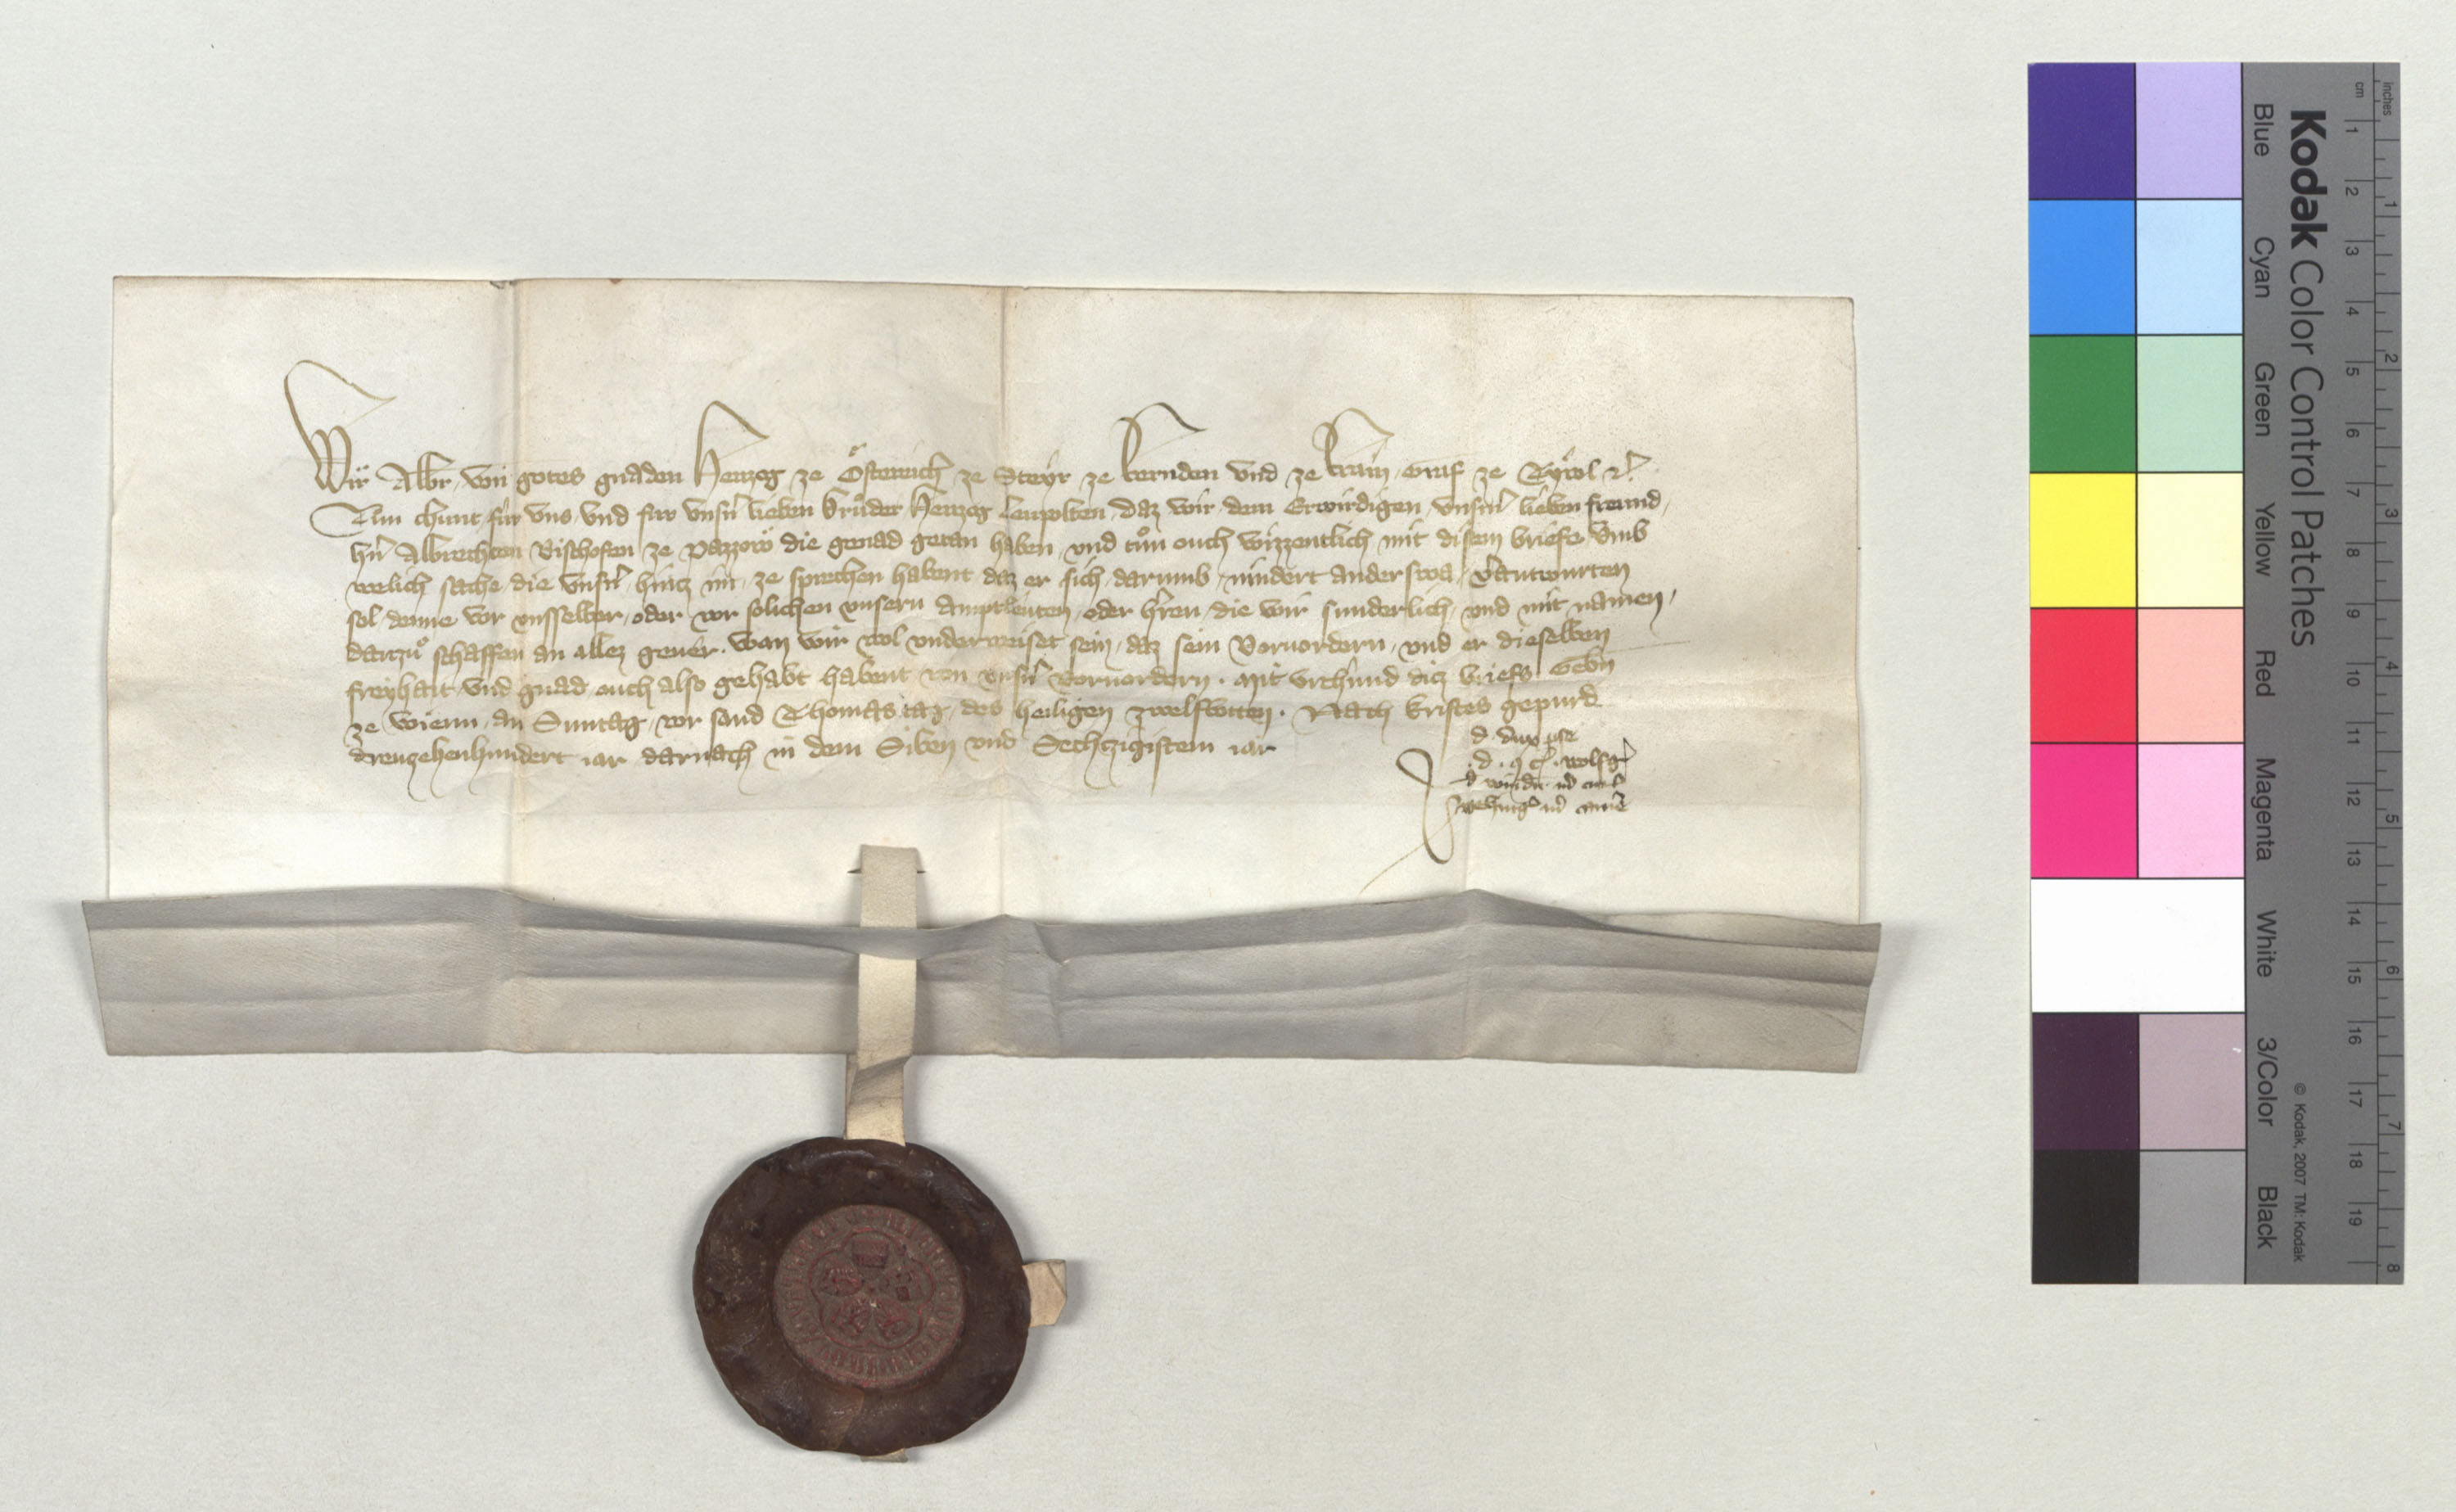 Wir Albr von gotes gnaden Hertzog ze Österreich ze Steyr ze kernden vnd ze krain Graf ze Tyrol
Tun chunt für vns vnd für vnsn̄ lieben Brůder Hertzog Leupolten daz wir dem Erwirdigen vnserm lieben freund
hn̄ Albrechten Bischofen ze Pazzow die genad getan haben vnd tůn ouch wizzentlich mit disem briefe vmb
welich sache die vnsn̄ hintz im ze sprechen habent daz er sich darumb nindert anderswa v̄antwurten
sol denne vor vnsselber oder vor solichen vnsern Amptleuten oder hr̄en die wir sunderlich vnd mit namen
dartzů schaffen an allez geuer. Wan wir wol vnderweiset sein daz sein Voruordern vnd er dieselben
freyhait vnd gnad ouch also gehabt habent von vnsn̄ voruordern. Mit vrchund ditz briefs Gebn̄
ze Wienn an Suntag vor sand Thomas tag des heiligen zwelfbotten. Nach kristes gepurd
dreutzehenhundert iar darnach in dem Siben vnd Sechtzigistem iar
d. dux
Kodak Color Control Patches
Blue Cyan Green Yellow Red Magenta White 3/Color Black
© Kodak, 2007 TM: Kodak
cm 1 2 3 4 5 6 7 8 9 10 11 12 13 14 15 16 17 18 19
inches 1 2 3 4 5 6 7 8